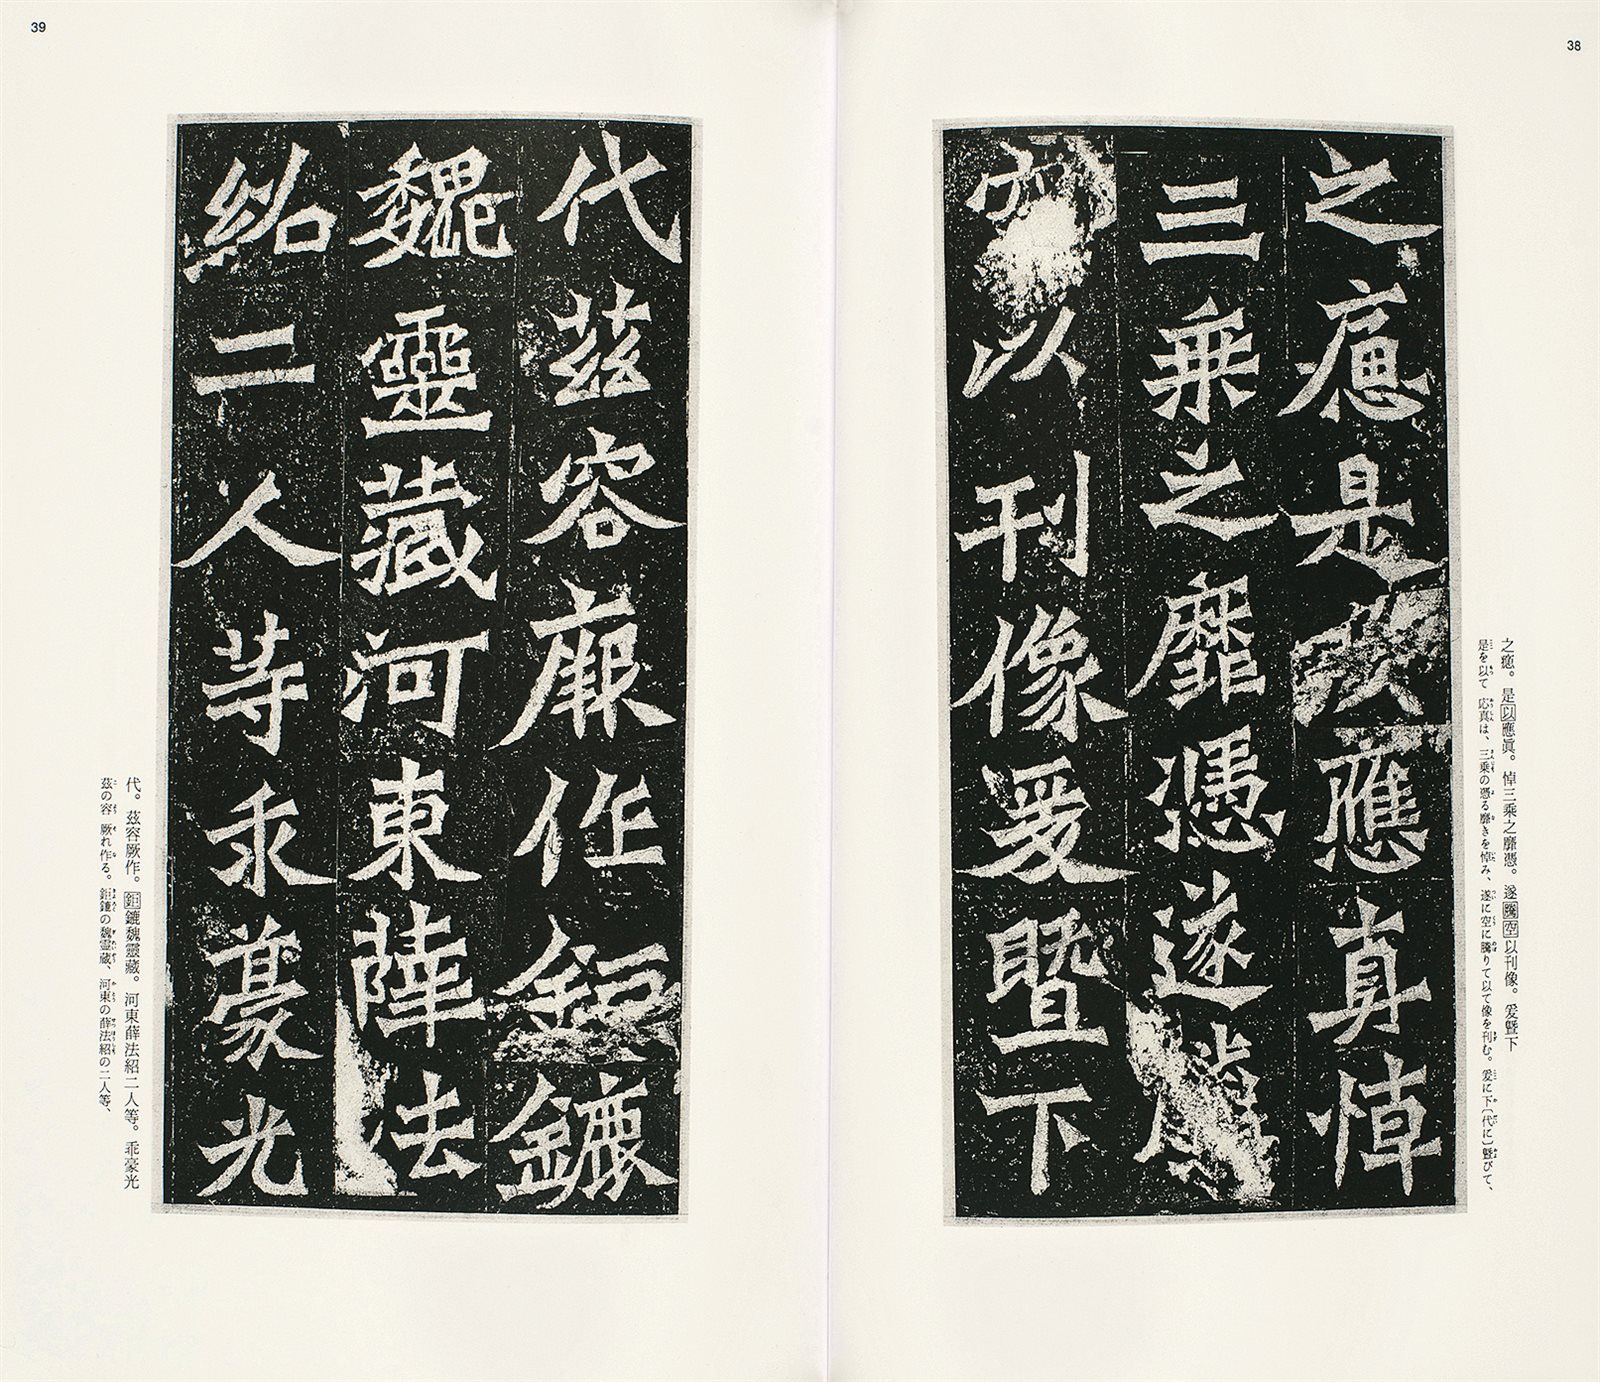 38
之癒是以應真悼
三乗之靡憑遂騰
空以刊像爰暨下
之癒。是以應眞。悼三乘之靡憑。遂騰空以刊像。爰曁下
是を以て応真は、三乗の憑る靡きを悼み、遂に空に騰りて以て像を刊む。爰に下〔代に〕曁びて、
39
代茲容厥作鉅鑣
魏靈藏河東薛法
紹二人等乖豪光
代。茲容厥作。鉅鑣魏靈藏。河東薛法紹二人等。乖豪光
茲の容厥れ作る。鉅鑣の魏霊蔵、河東の薛法紹の二人等、